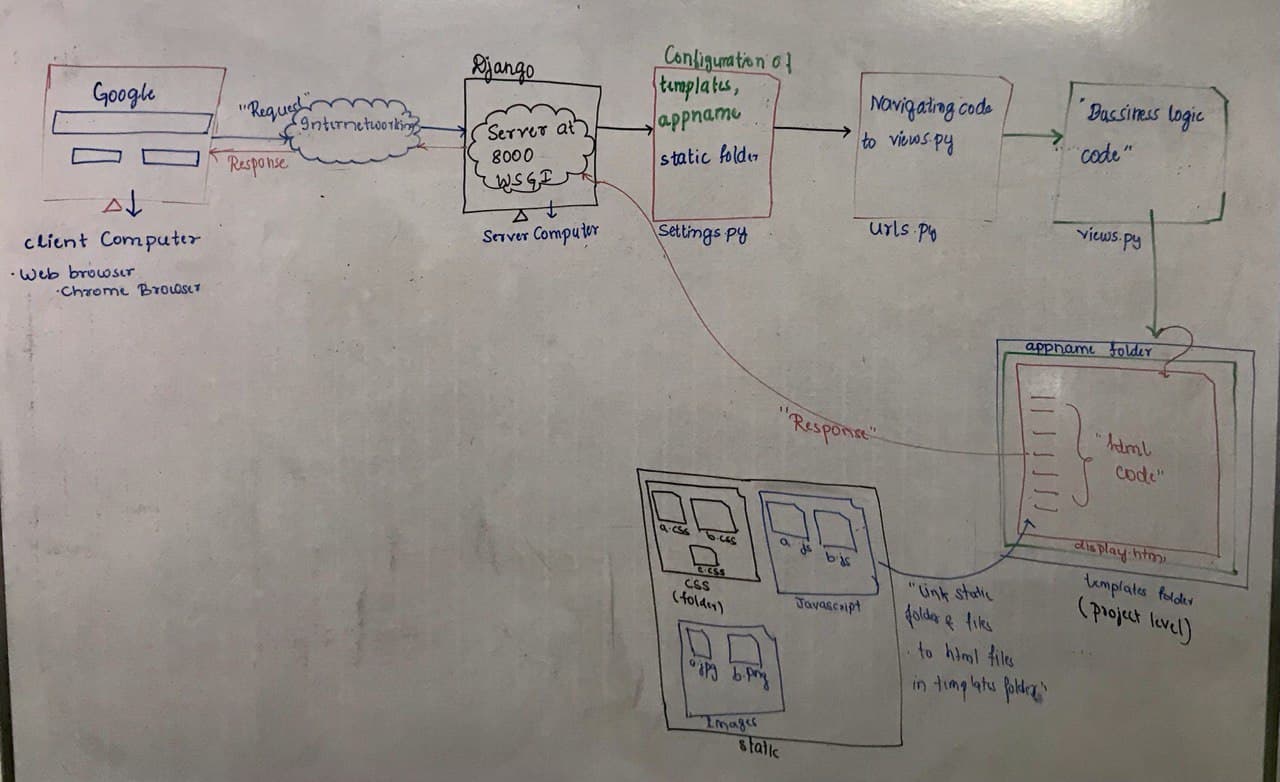 Google
client Computer
· Web browser
· Chrome Browser
"Request"
Internetworking
Response
Django
Server at
8000
WSGI
Server Computer
Configuration of
templates,
appname
static folder
Settings.py
Navigating code
to views.py
urls.py
"Bassiness logic
code"
views.py
appname folder
"html
code"
display.html
templates folder
(project level)
"Response"
a.css
b.css
c.css
css
(folder)
a.js
b.js
Javascript
a.jpg
b.png
Images
static
"Link static
folder & files
to html files
in templates folder"